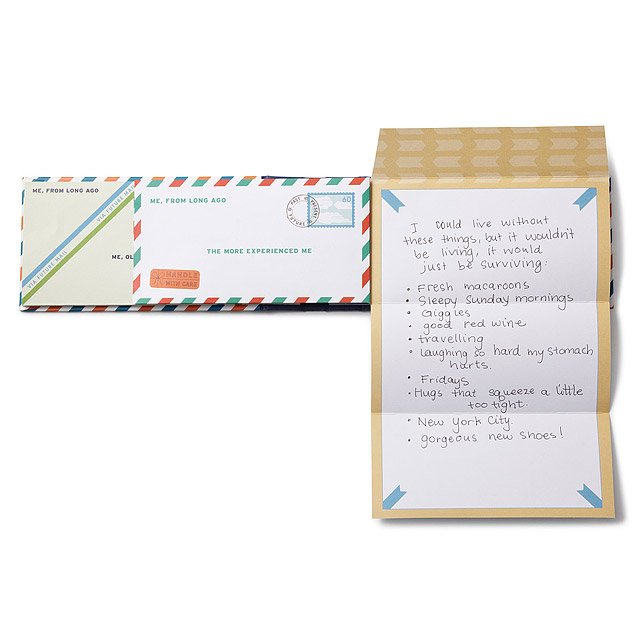 ME, FROM LONG AGO
VIA FUTURE MAIL
VIA FUTURE MAIL
ME, OL
ME, FROM LONG AGO
60
THE MORE EXPERIENCED ME
HANDLE
WITH CARE
I could live without
these things, but it wouldn't
be living, it would
just be surviving:
• Fresh macaroons
• Sleepy Sunday mornings
• Giggles
• good red wine
• travelling
• laughing so hard my stomach
hurts.
• Fridays
• Hugs that squeeze a little
too tight.
• New York City.
• gorgeous new shoes!